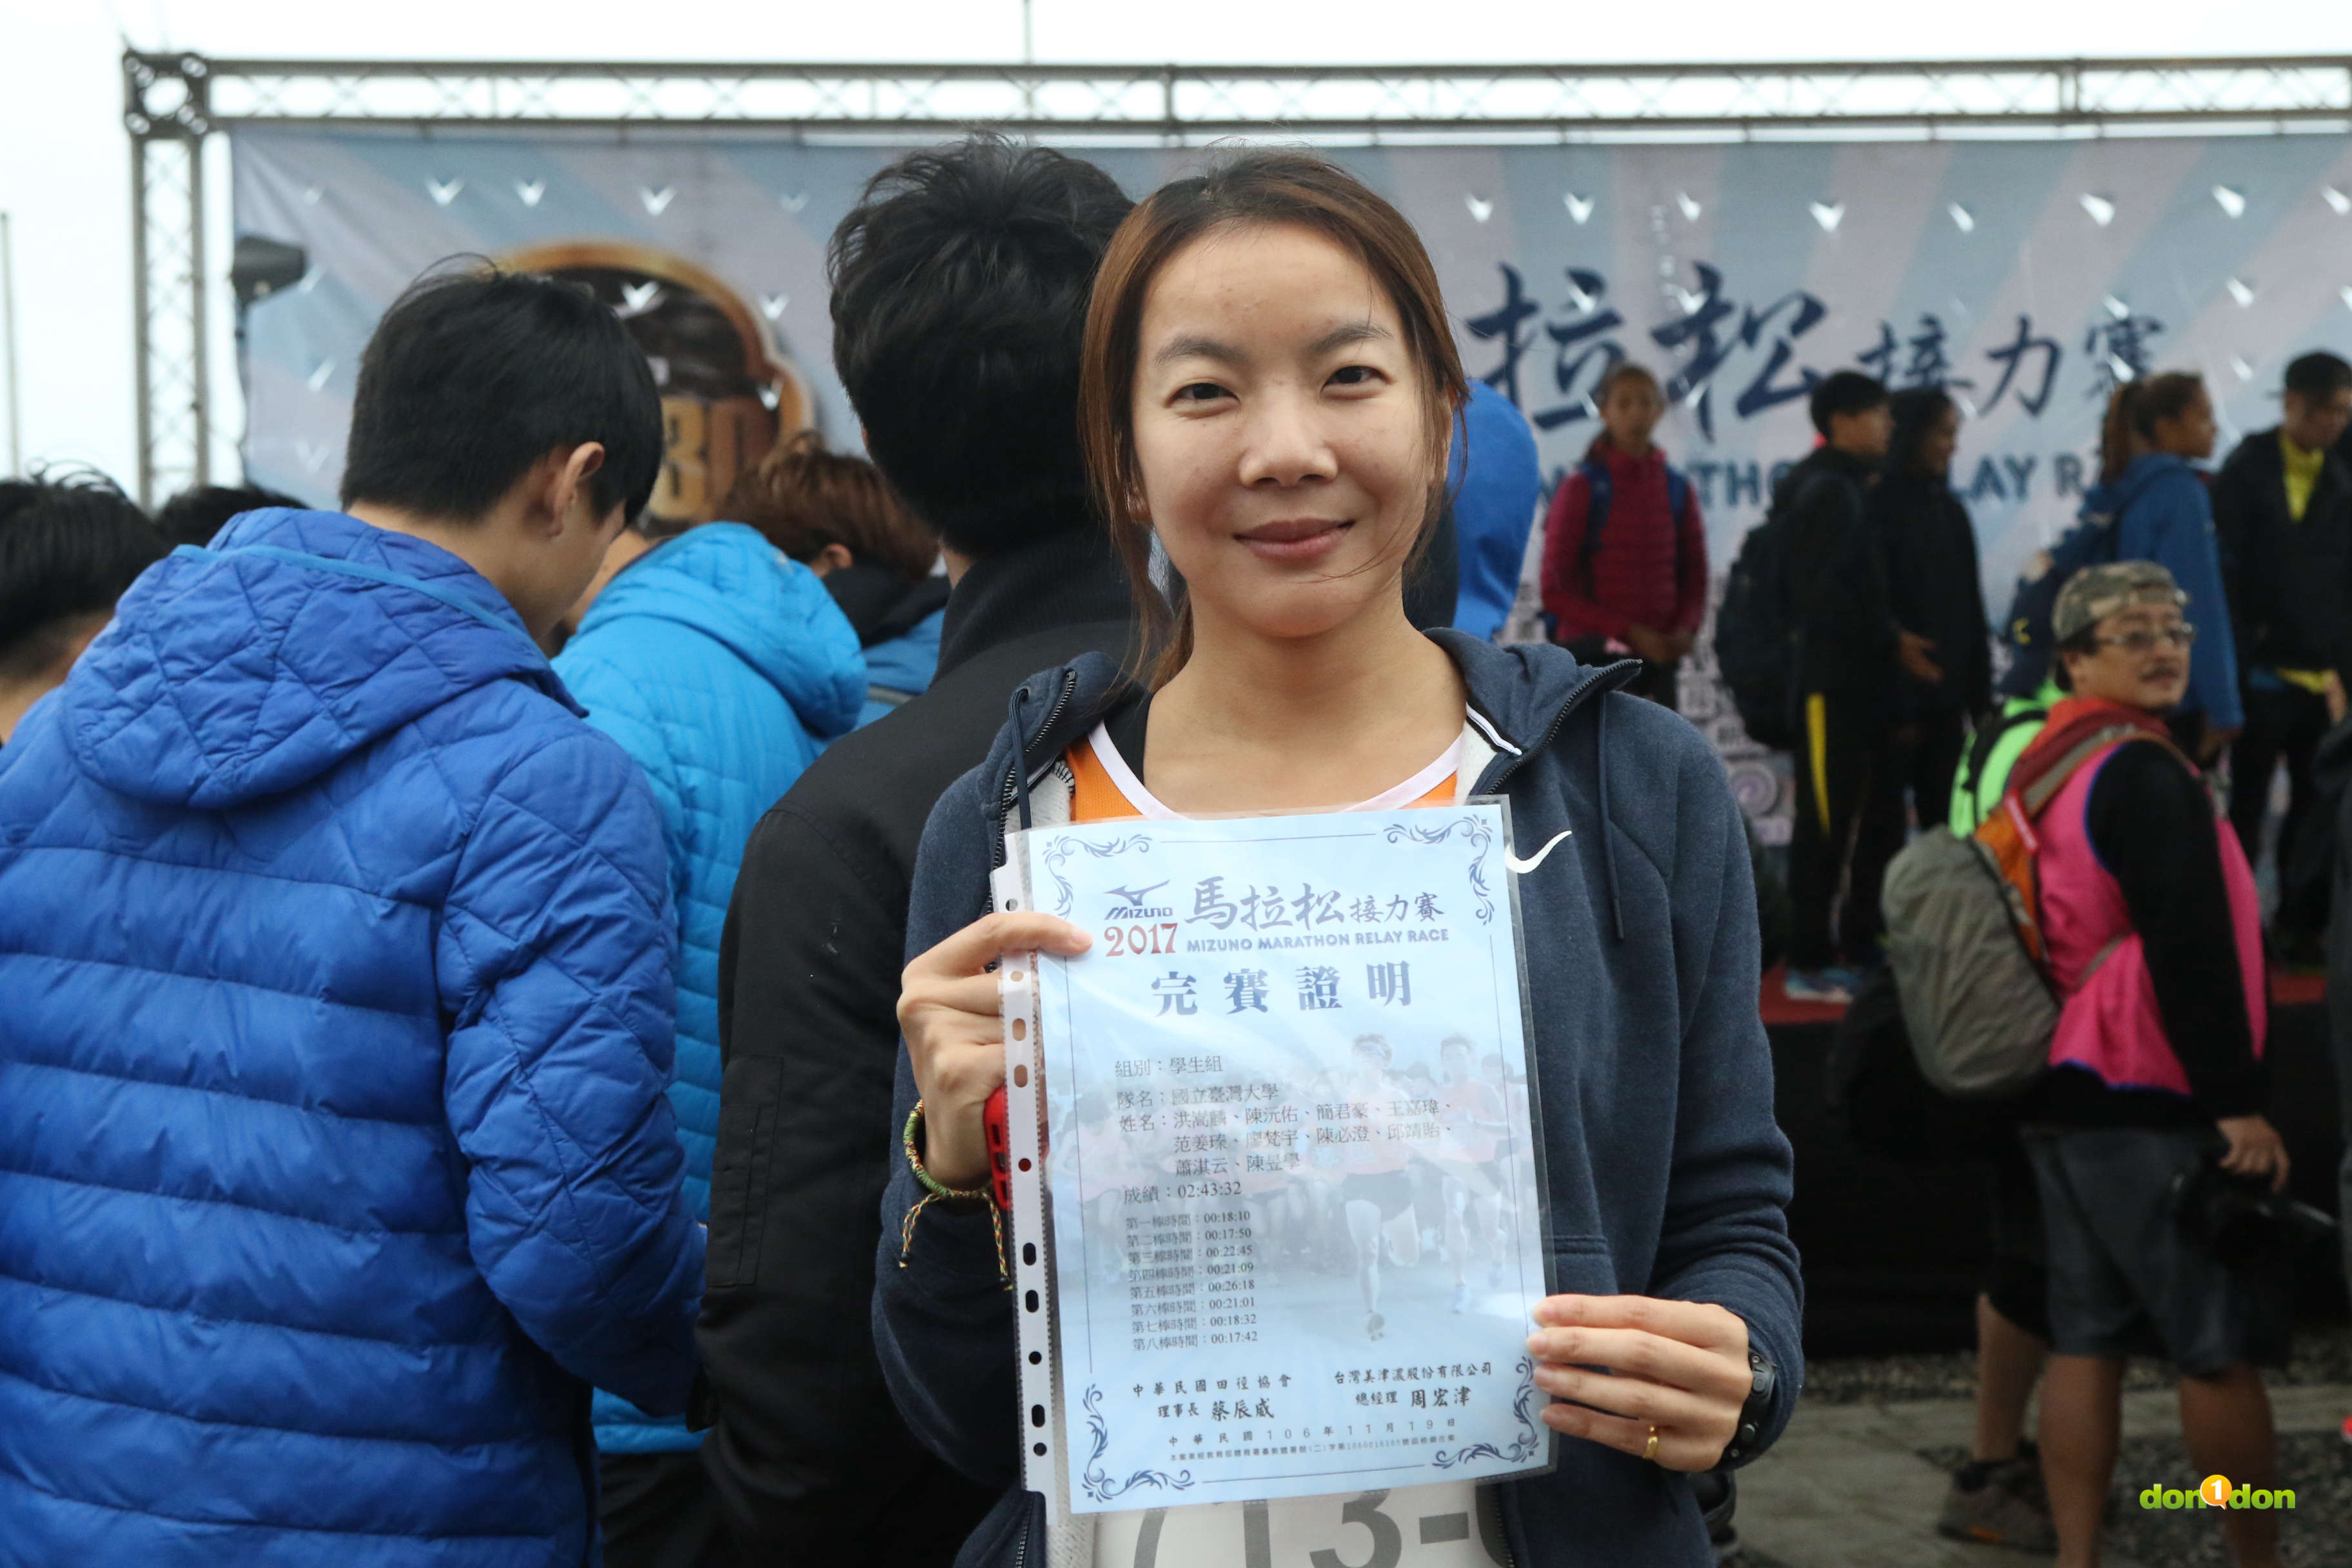 拉松接力賽
RELAY RACE
MIZUNO
馬拉松接力賽
2017
MIZUNO MARATHON RELAY RACE
完賽證明
組別：學生組
隊名：國立臺灣大學
姓名：洪嵩麟、陳沅佑、簡君豪、王嘉瑋、
范姜瑧、廖梵宇、陳必澄、邱靖貽、
蕭淇云、陳昱學
成績：02:43:32
第一棒時間：00:18:10
第二棒時間：00:17:50
第三棒時間：00:22:45
第四棒時間：00:21:09
第五棒時間：00:26:18
第六棒時間：00:21:01
第七棒時間：00:18:32
第八棒時間：00:17:42
中華民國田徑協會
理事長 蔡辰威
台灣美津濃股份有限公司
總經理 周宏津
中華民國106年11月19日
713-
don1don